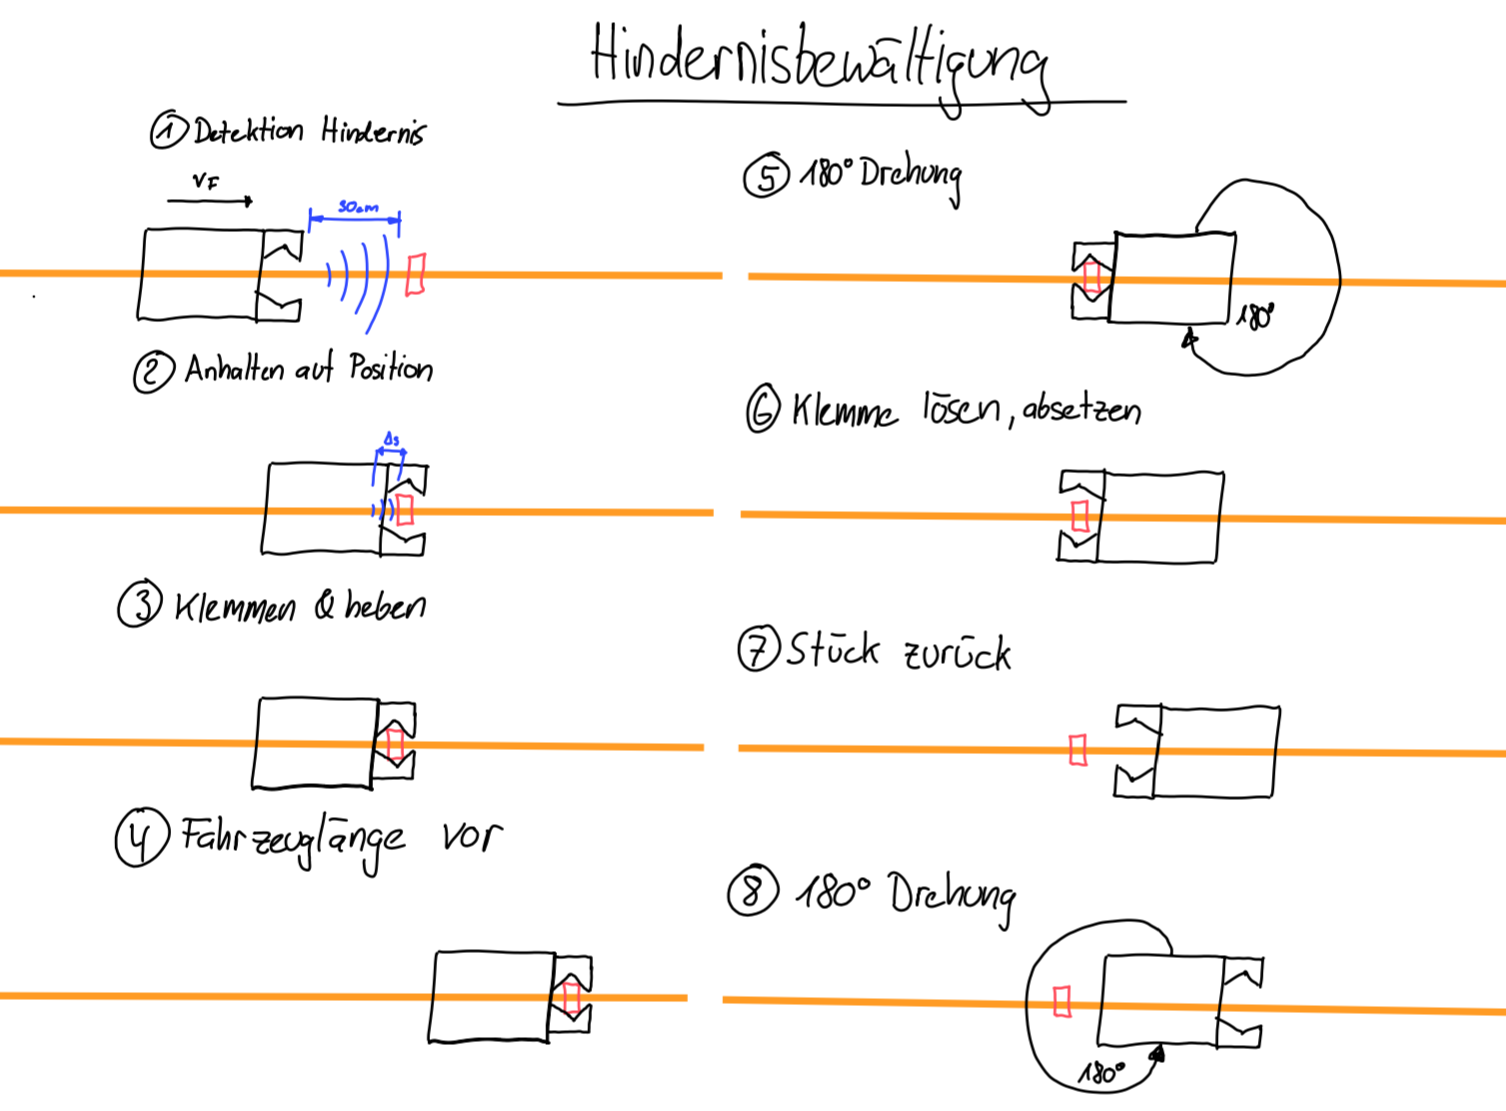 Hindernisbewältigung
① Detektion Hindernis
vF
30cm
② Anhalten auf Position
Δs
③ Klemmen & heben
④ Fahrzeuglänge vor
⑤ 180° Drehung
180°
⑥ Klemme lösen, absetzen
⑦ Stück zurück
⑧ 180° Drehung
180°